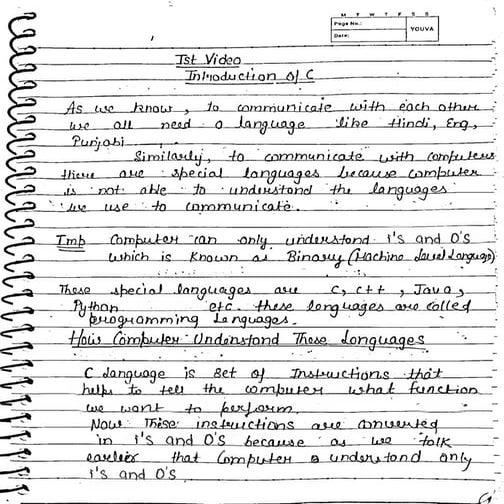 M T W T F S S
Page No.:
Date:
YOUVA
Ist Video
Introduction of C
As we know, to communicate with each other
we all need a language like Hindi, Eng,
Punjabi
Similarly, to communicate with computers
there are special languages because computer
is not able to understand the languages
we use to communicate.
Imp Computer can only understand 1's and 0's
which is known as Binary (Machine Level Language)
These special languages are C, C++, Java,
Python etc. these languages are called
programming languages.
How Computer Understand These Languages
C language is set of Instructions that
helps to tell the computer what function
we want to perform.
Now These instructions are converted
in 1's and 0's because as we talk
earlier that Computer understand only
1's and 0's